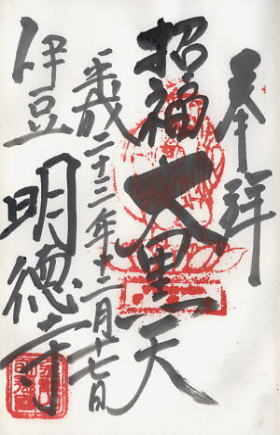 奉拝
招福
大黒天
平成二十三年十二月十七日
伊豆
明徳寺